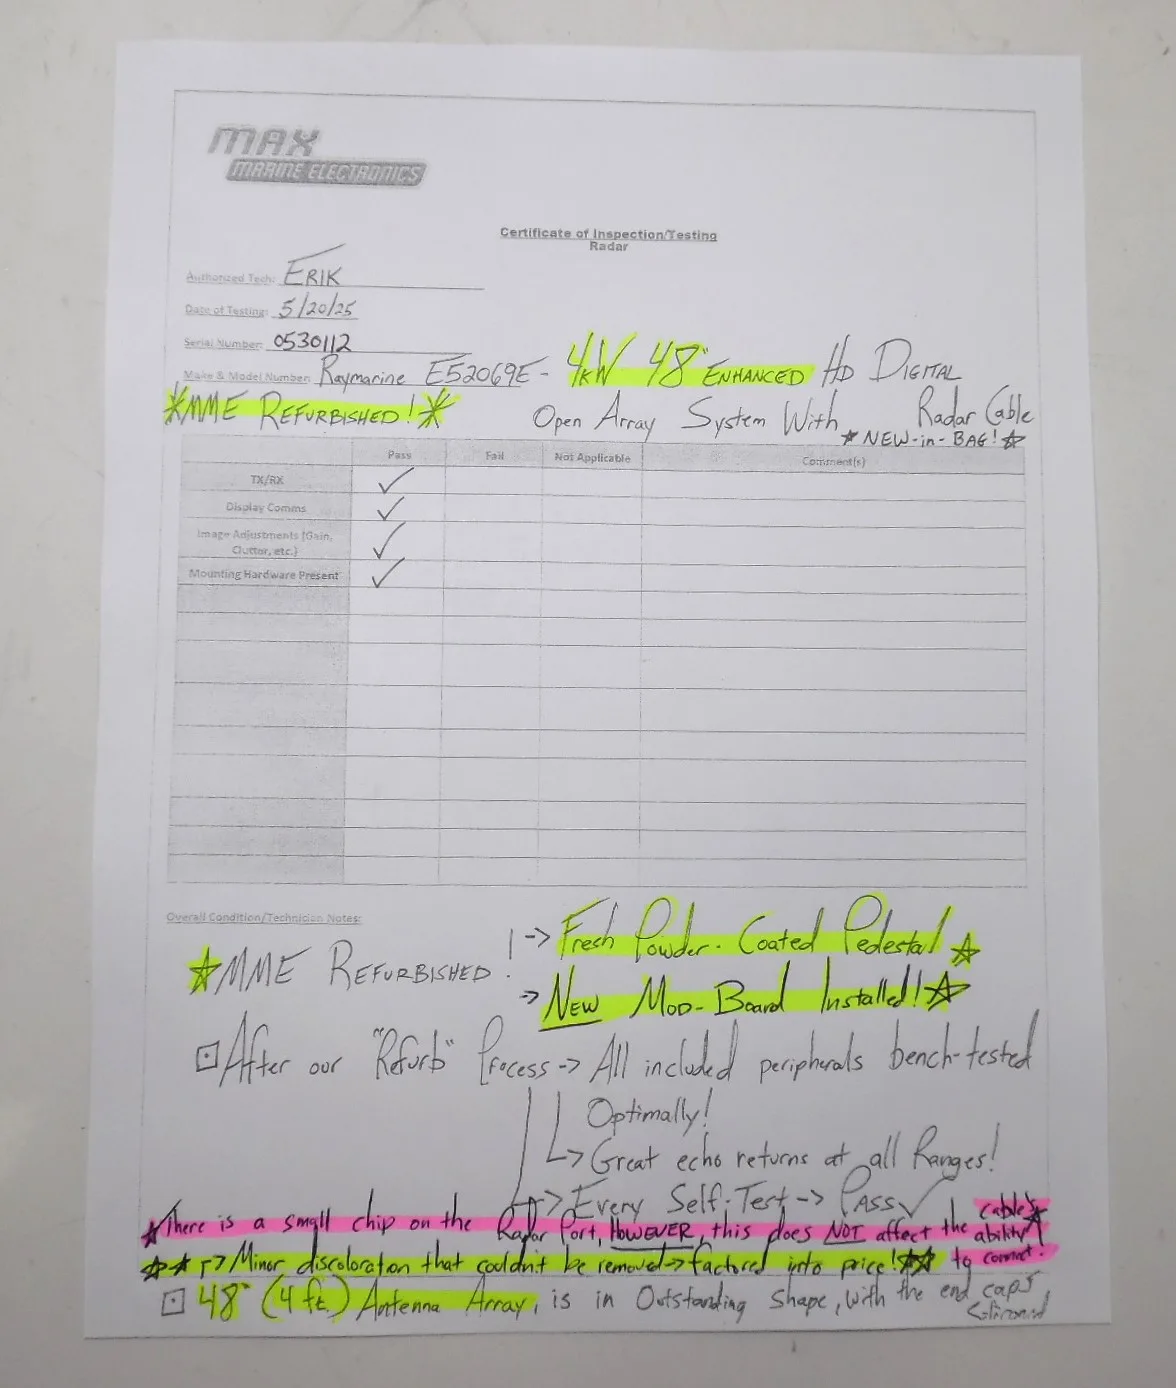 MAX
MARINE ELECTRONICS
Certificate of Inspection/Testing
Radar
Authorized Tech: ERIK
Date of Testing: 5/20/25
Serial Number: 0530112
Make & Model Number: Raymarine E52069E - 4kW 48" ENHANCED HD DIGITAL
*MME REFURBISHED!* Open Array System With Radar Cable
★ NEW-in-BAG! ★
Pass Fail Not Applicable Comment(s)
TX/RX ✓
Display Comms ✓
Image Adjustments (Gain, Clutter, etc.) ✓
Mounting Hardware Present ✓
Overall Condition/Technician Notes:
★MME REFURBISHED! -> Fresh Powder-Coated Pedestal ★
-> NEW MOD-Board Installed! ★
⊡ After our "Refurb" Process -> All included peripherals bench-tested
Optimally!
-> Great echo returns at all Ranges!
-> Every Self-Test -> PASS ✓
★There is a small chip on the Radar Port, HOWEVER, this does NOT affect the cable's ability to connect.
★★ -> Minor discoloration that couldn't be removed -> factored into price! ★★
⊡ 48" (4 ft.) Antenna Array, is in Outstanding shape, with the end caps